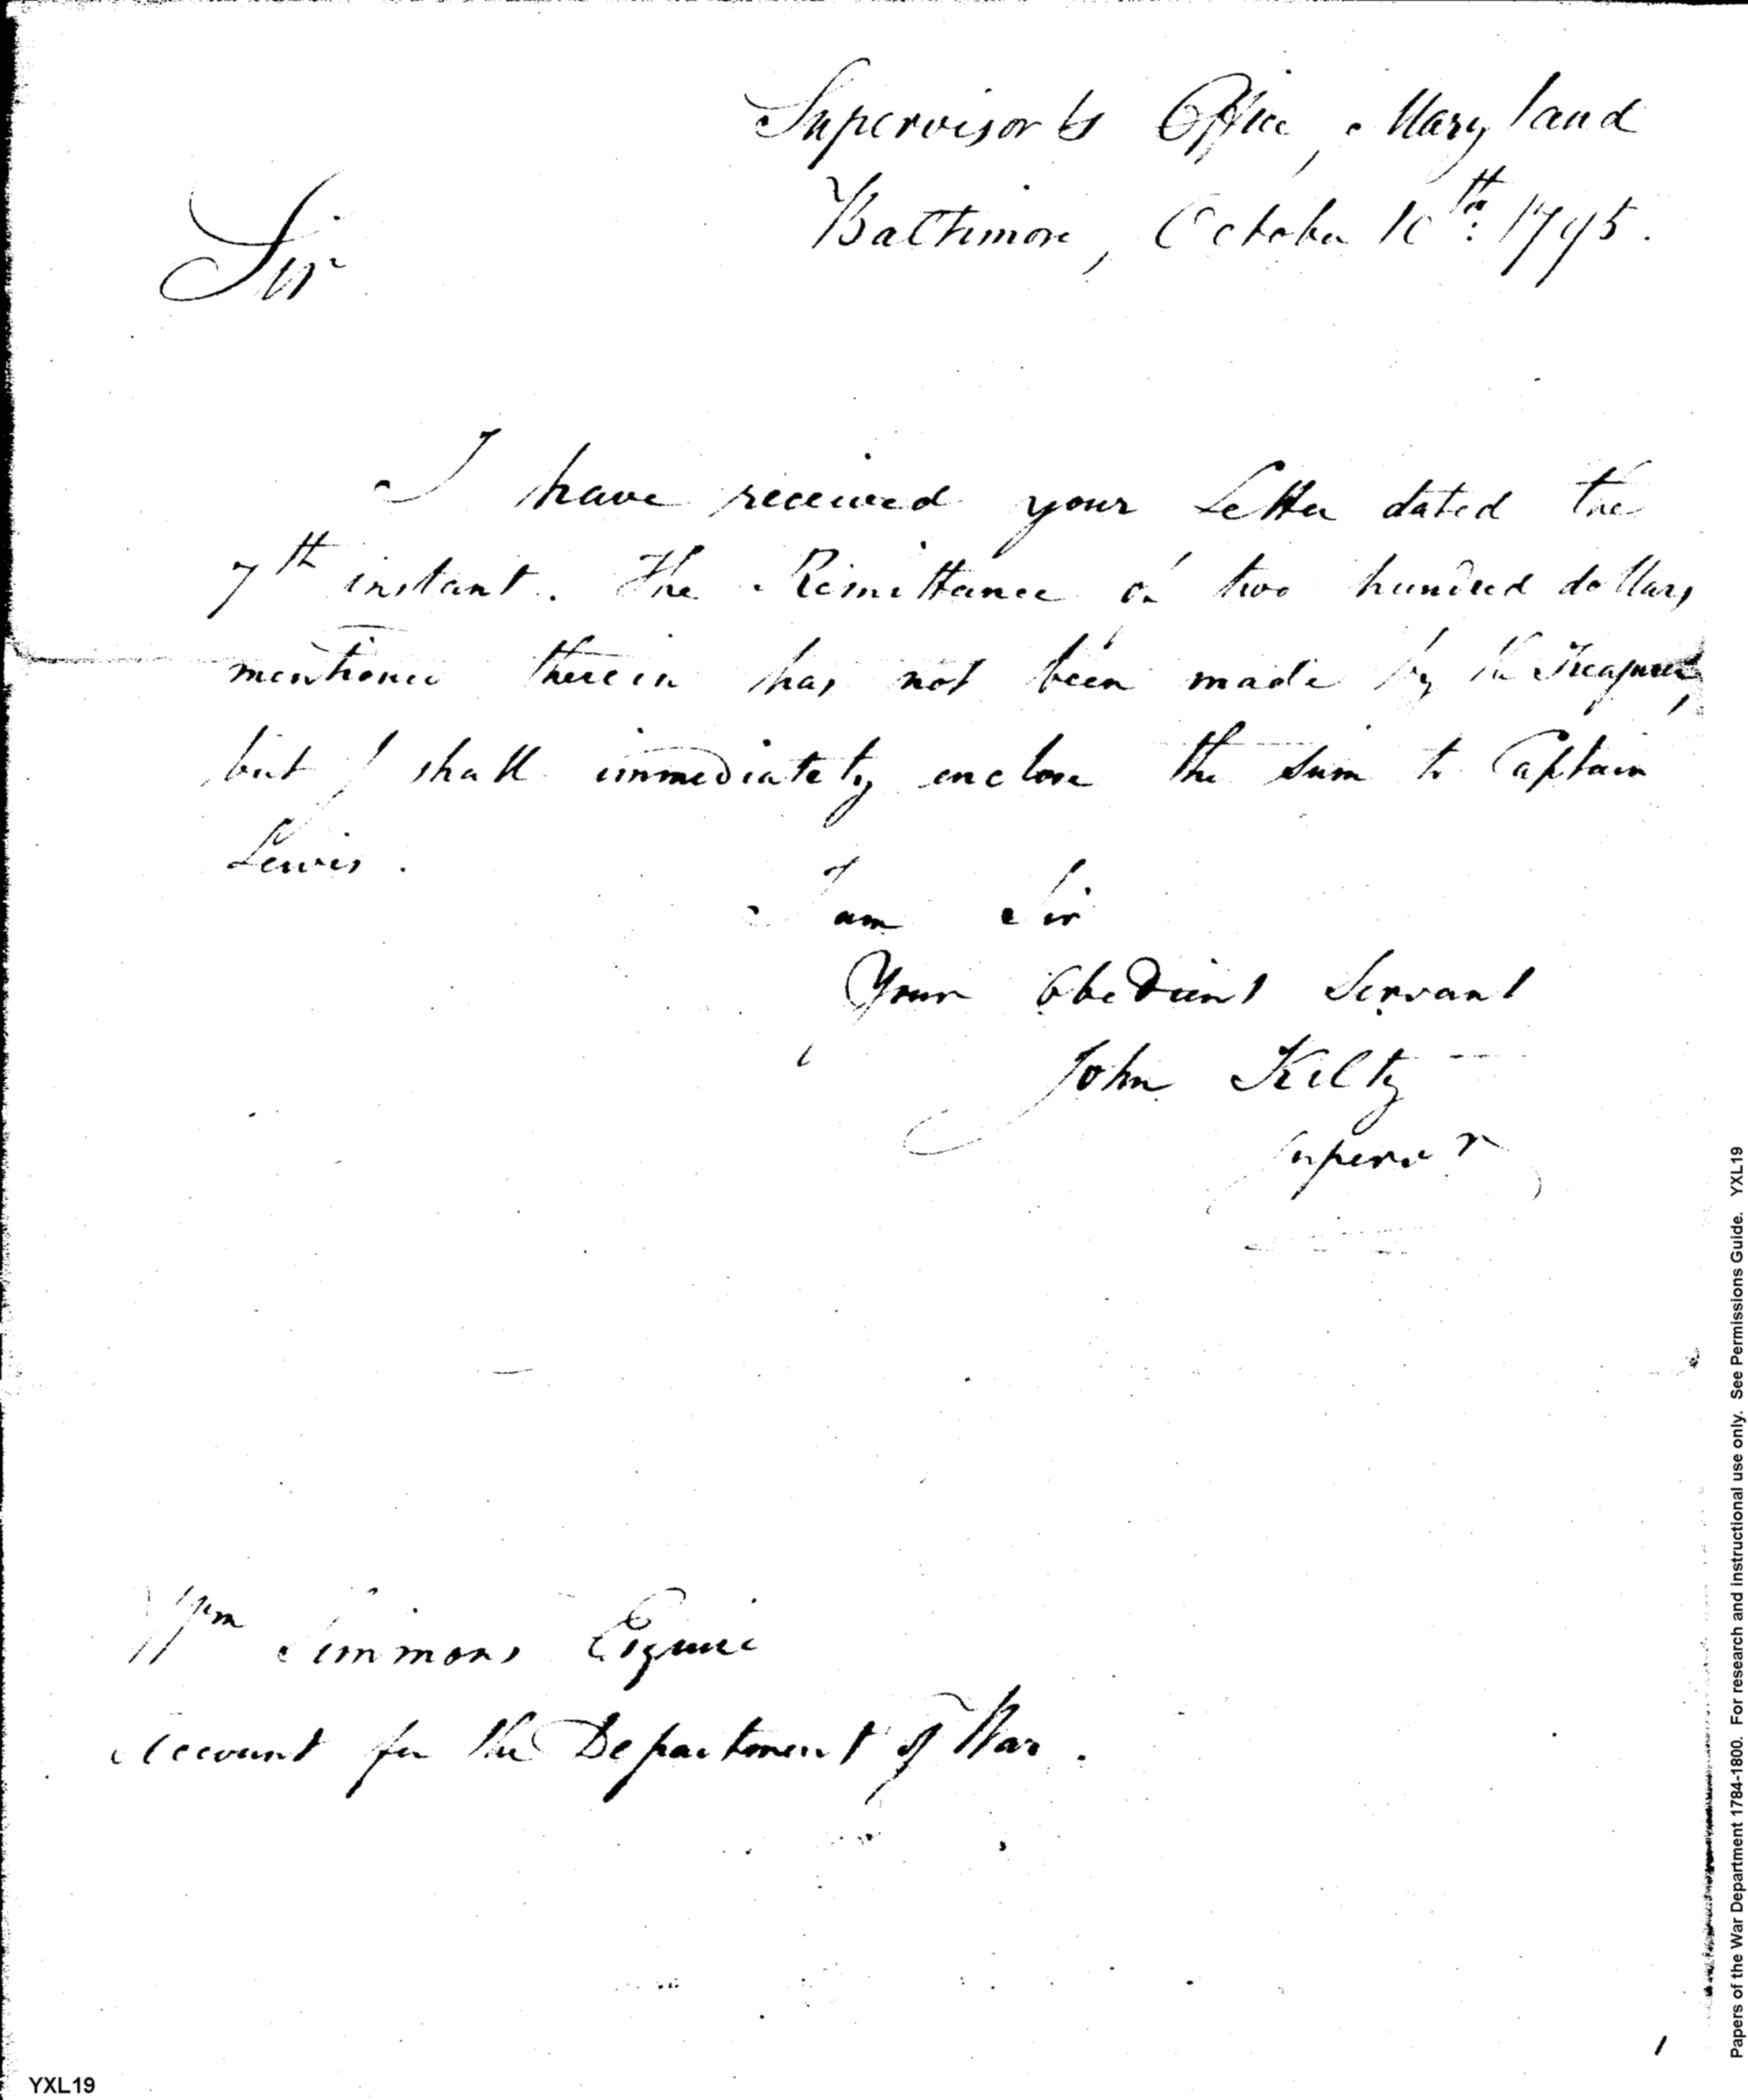 Supervisor's Office, Maryland
Baltimore, October 10th 1795.
Sir
I have received your Letter dated the
7th instant. The Remittance of two hundred dollars
mentioned therein has not been made by the Treasurer,
but I shall immediately enclose the sum to Captain
Lewis.
I am Sir
Your Obedient Servant
John Kilty
Supervr
Wm Simmons Esquire
Account for the Department of War.
YXL19
Papers of the War Department 1784-1800. For research and instructional use only. See Permissions Guide. YXL19